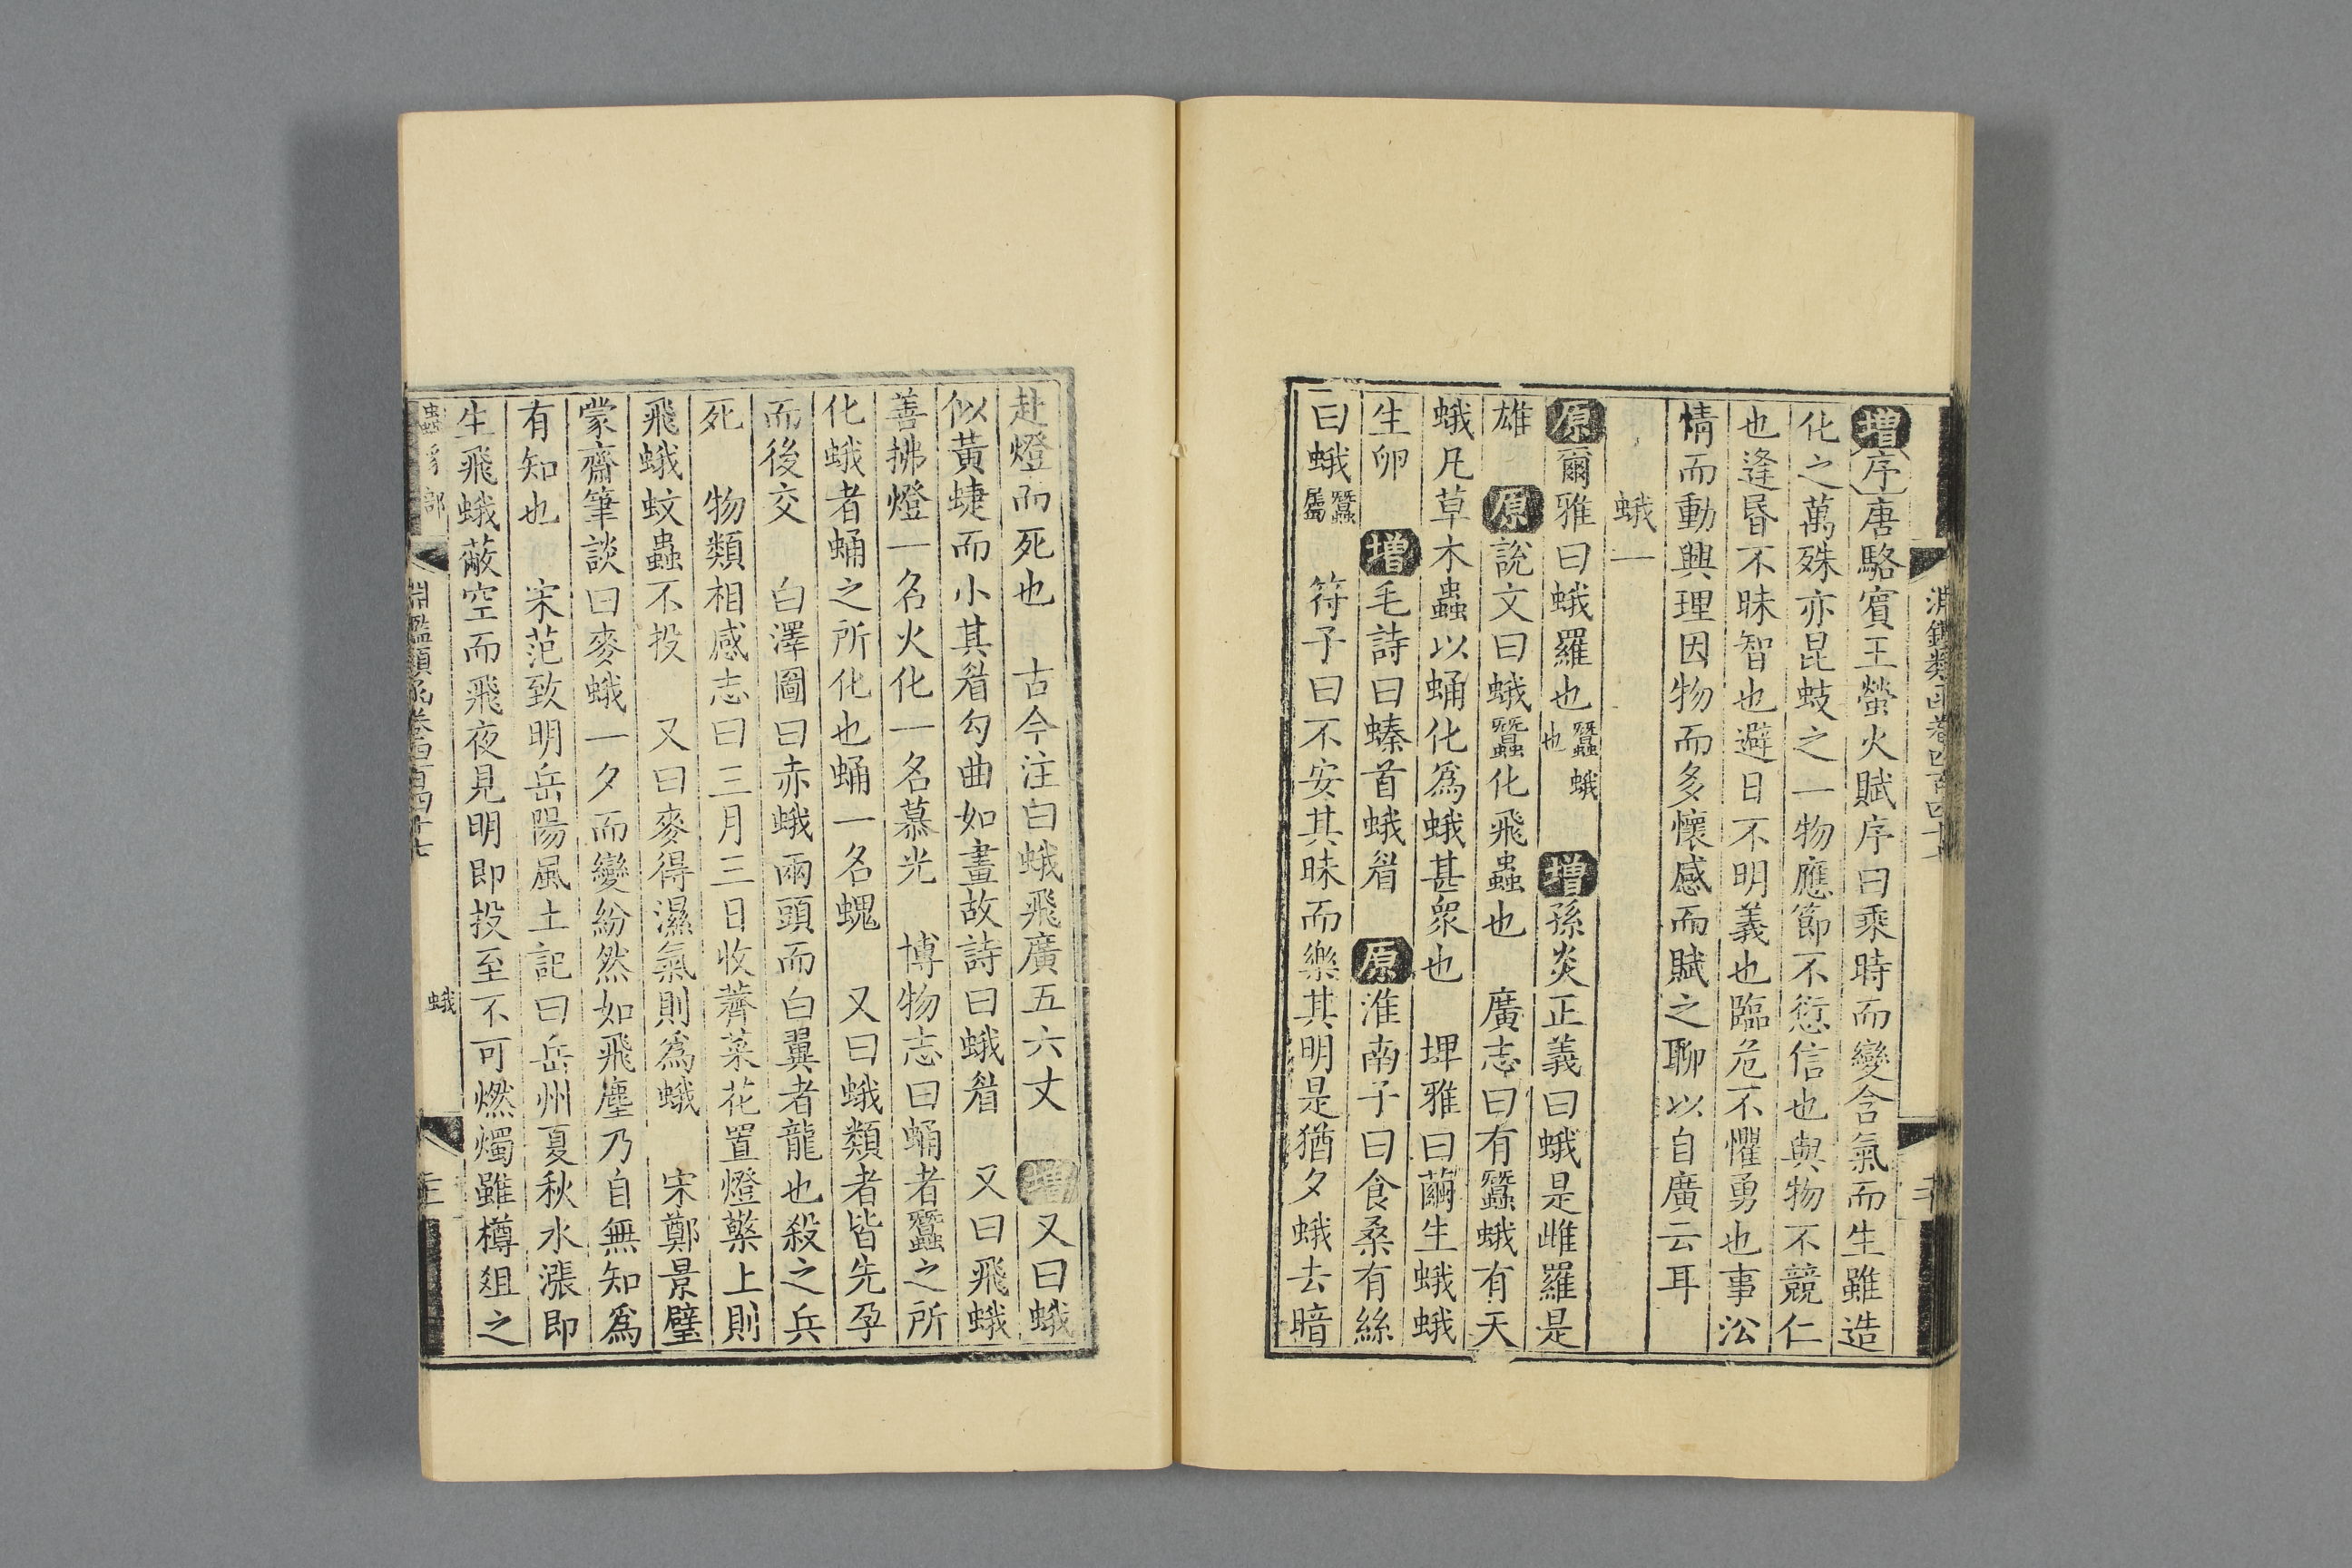 增序唐駱賓王螢火賦序曰乘時而變含氣而生雖造
化之萬殊亦昆蚑之一物應節不愆信也與物不競仁
也逢昬不昧智也避日不明義也臨危不懼勇也事沿
情而動興理因物而多懷感而賦之聊以自廣云耳
蛾一
原爾雅曰蛾羅也蠶蛾也 增孫炎正義曰蛾是雌羅是
雄 原說文曰蛾蠶化飛蟲也 廣志曰有蠶蛾有天
蛾凡草木蟲以蛹化爲蛾甚衆也 埤雅曰繭生蛾蛾
生卵 增毛詩曰螓首蛾眉 原淮南子曰食桑有絲
曰蛾蠶屬 符子曰不安其昧而樂其明是猶夕蛾去暗
赴燈而死也 古今注曰蛾飛廣五六丈 增又曰蛾
似黃蜨而小其眉勾曲如畫故詩曰蛾眉 又曰飛蛾
善拂燈一名火化一名慕光 博物志曰蛹者蠶之所
化蛾者蛹之所化也蛹一名螝 又曰蛾類者皆先孕
而後交 白澤圖曰赤蛾兩頭而白翼者龍也殺之兵
死 物類相感志曰三月三日收薺菜花置燈檠上則
飛蛾蚊蟲不投 又曰麥得濕氣則爲蛾 宋鄭景璧
蒙齋筆談曰麥蛾一夕而變紛然如飛塵乃自無知爲
有知也 宋范致明岳陽風土記曰岳州夏秋水漲即
生飛蛾蔽空而飛夜見明即投至不可燃燭雖樽俎之
蟲豸部 淵鑑類函卷四百四十七 蛾